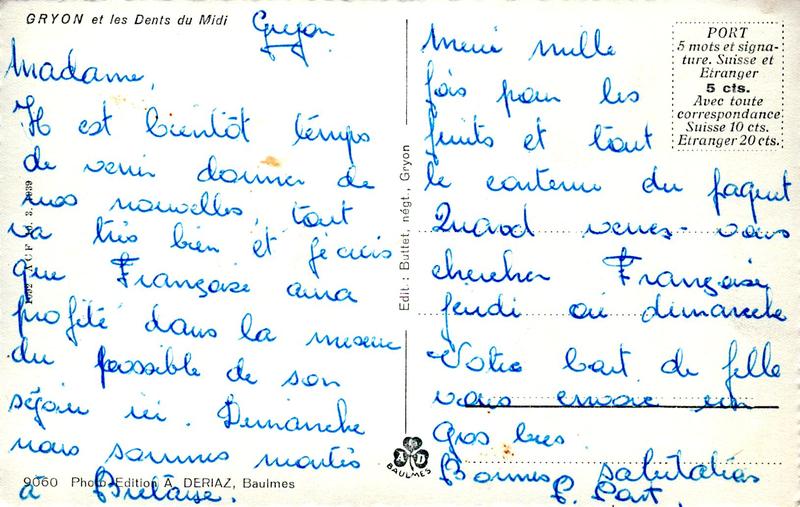 GRYON et les Dents du Midi
Gryon
Madame,
Il est bientôt temps
de venir donner de
nos nouvelles, tout
va très bien et je crois
que Françoise aura
profité dans la mesure
du possible de son
séjour ici. Dimanche
nous sommes montés
à Bretaise.
9060 Photo-Edition A. DERIAZ, Baulmes
Edit.: Buttet, négt., Gryon
A D
BAULMES
PORT
5 mots et signa-
ture. Suisse et
Etranger
5 cts.
Avec toute
correspondance
Suisse 10 cts.
Etranger 20 cts.
Merci mille
fois pour les
fruits et tout
le contenu du paquet
Quand venez-vous
chercher Françoise
jeudi ou dimanche
Votre bout de fille
vous envoie un
gros bec.
Bonnes salutations